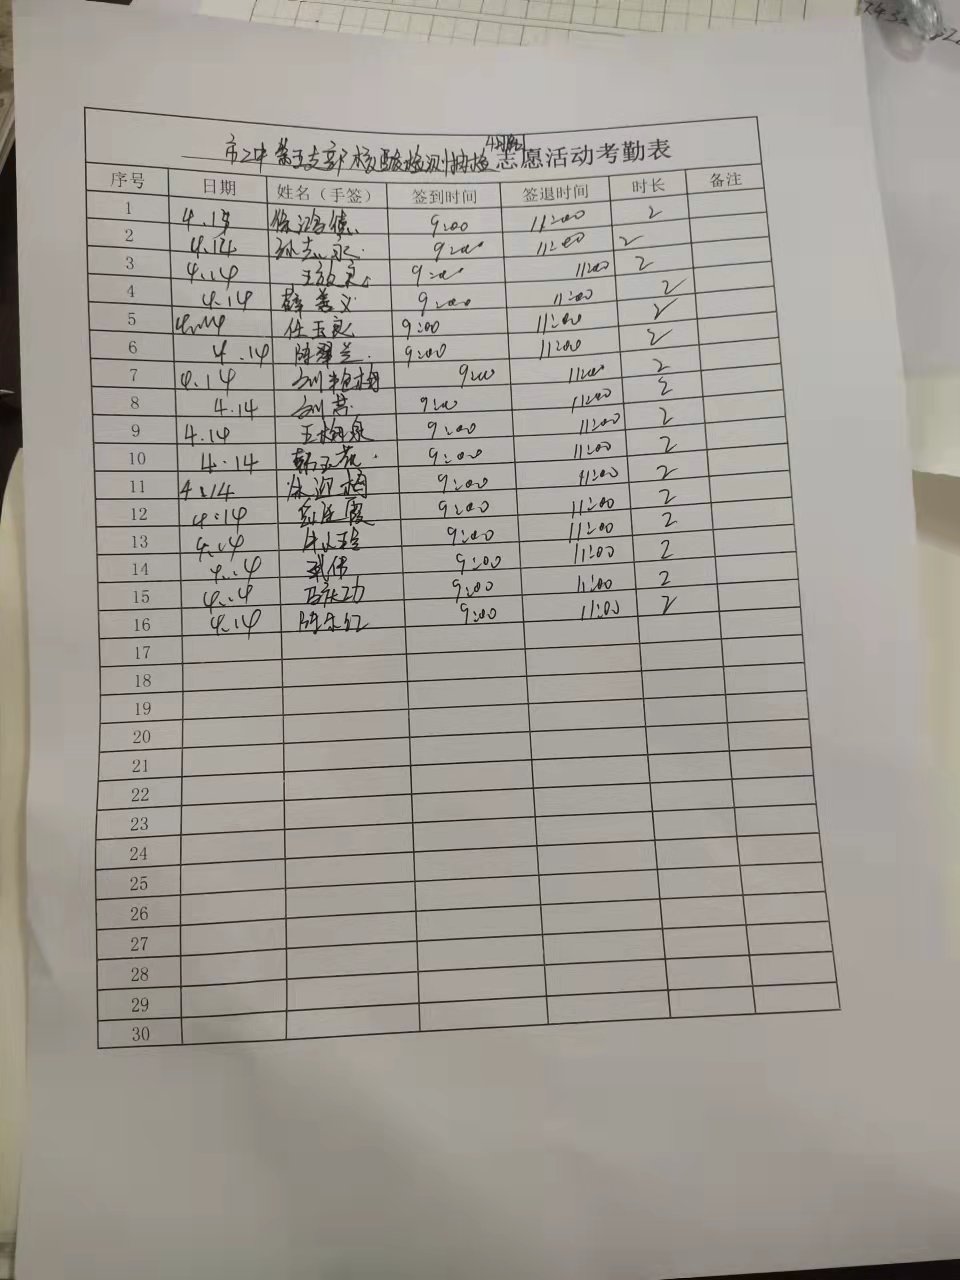 市二中第五支部核酸检测抽检 志愿活动考勤表
序号 日期 姓名（手签） 签到时间 签退时间 时长 备注
1 4.15 徐鸿儒 9:00 11:00 2
2 4.14 孙志永 9:00 11:00 2
3 4.14 9:00 11:00 2
4 4.14 薛善义 9:00 11:00 2
5 4.14 任玉良 9:00 11:00 2
6 4.14 陈翠兰 9:00 11:00 2
7 4.14 9:00 11:00 2
8 4.14 9:00 11:00 2
9 4.14 9:00 11:00 2
10 4.14 9:00 11:00 2
11 4.14 9:00 11:00 2
12 4.14 9:00 11:00 2
13 4.14 9:00 11:00 2
14 4.14 9:00 11:00 2
15 4.14 9:00 11:00 2
16 4.14 9:00 11:00 2
17
18
19
20
21
22
23
24
25
26
27
28
29
30